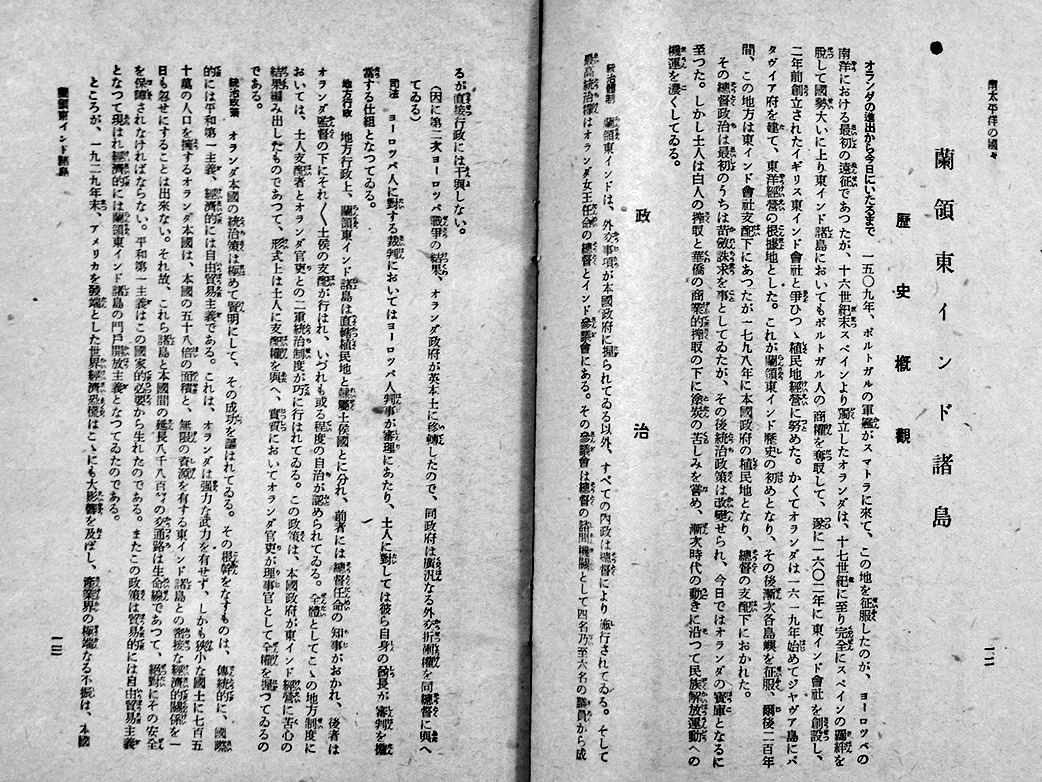 南太平洋の國々
一二
蘭領東インド諸島
歷史概觀
オランダの進出から今日にいたるまで 一五〇九年、ポルトガルの軍艦がスマトラに來て、この地を征服したのが、ヨーロッパの
南洋における最初の遠征であつたが、十六世紀末スペインより獨立したオランダは、十七世紀に至り完全にスペインの羈絆を
脫して國勢大いに上り東インド諸島においてもポルトガル人の商權を奪取して、遂に一六〇二年に東インド會社を創設し、
二年前創立されたイギリス東インド會社と爭ひつゝ植民地經營に努めた。かくてオランダは一六一九年始めてジャヴア島にバ
タヴィア府を建て、東洋經營の根據地とした。これが蘭領東インド歷史の初めとなり、その後漸次各島嶼を征服、爾後二百年
間、この地方は東インド會社支配下にあつたが一七九八年に本國政府の植民地となり、總督の支配下におかれた。
その總督政治は最初のうちは苛斂誅求を事としてゐたが、その後統治政策は改變せられ、今日ではオランダの寶庫となるに
至つた。しかし土人は白人の搾取と華僑の商業的搾取の下に塗炭の苦しみを嘗め、漸次時代の動きに沿つて民族解放運動への
機運を濃くしてゐる。
政治
統治體制 蘭領東インドは、外交事項が本國政府に握られてゐる以外、すべての內政は總督により施行されてゐる。そして
最高統治權はオランダ女王任命の總督とインド參議會にある。その參議會は總督の諮問機關として四名乃至六名の議員から成
るが直接行政には干與しない。
（因に第二次ヨーロッパ戰爭の結果、オランダ政府が英本土に移轉したので、同政府は廣汎なる外交折衝權を同總督に與へ
てゐる）
司法 ヨーロッパ人に對する裁判においてはヨーロッパ人判事が審理にあたり、土人に對しては彼ら自身の酋長が審判を擔
當する仕組となつてゐる。
地方行政 地方行政上、蘭領東インド諸島は直轄植民地と隷屬土侯國とに分れ、前者には總督任命の知事がおかれ、後者は
オランダ監督の下にそれ〲土侯の支配が行はれ、いづれも或る程度の自治が認められてゐる。全體としてこゝの地方制度に
おいては、土人支配者とオランダ官吏との二重統治制度が巧に行はれてゐる。この政策は、本國政府が東インド經營に苦心の
結果編み出したものであつて、形式上は土人に支配權を與へ、實質においてオランダ官吏が理事官として全權を握つてゐるの
である。
統治政策 オランダ本國の統治策は極めて賢明にして、その成功を謳はれてゐる。その根幹をなすものは、傳統的に、國際
的には平和第一主義、經濟的には自由貿易主義である。これは、オランダは强力な武力を有せず、しかも狹小な國土に七百五
十萬の人口を擁するオランダ本國は、本國の五十八倍の面積と、無限の資源を有する東インド諸島との密接な經濟的關係を一
日も忽せにすることは出來ない。それ故、これら諸島と本國間の延長八千八百の交通路は生命線であつて、絕對にその安全
を保障されなければならない。平和第一主義はこの國家的必要から生れたのである。またこの政策は貿易的には自由貿易主義
となつて現はれ經濟的には蘭領東インド諸島の門戶開放主義となつてゐたのである。
ところが、一九二九年末、アメリカを發端とした世界經濟恐慌はこゝにも大影響を及ぼし、產業界の極端なる不振は、本國
蘭領東インド諸島
一三